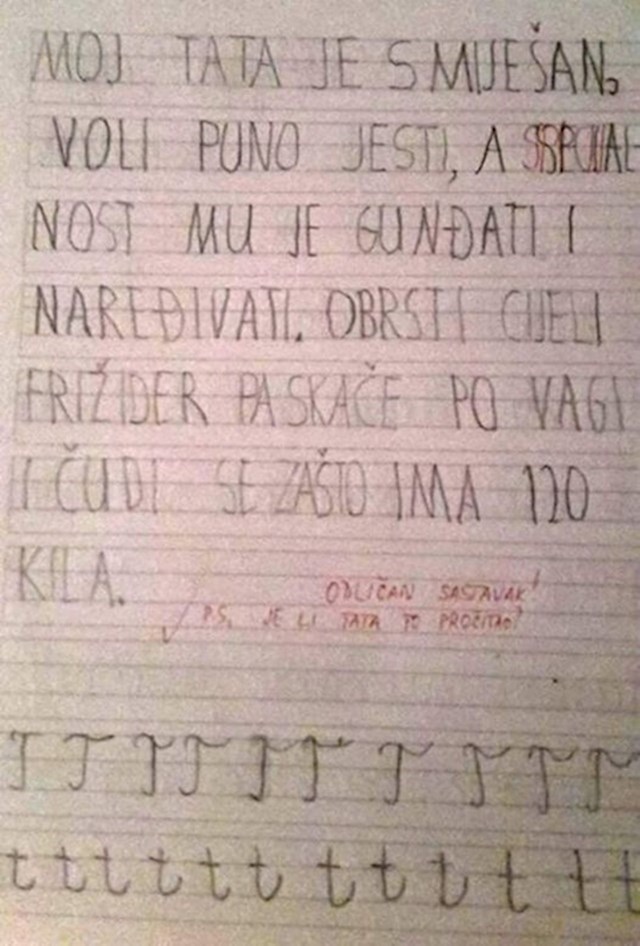 MOJ TATA JE SMIJEŠAN,
VOLI PUNO JESTI, A
NOST MU JE GUNĐATI I
NAREĐIVATI. OBRSTI CIJELI
FRIŽIDER PA SKAČE PO VAGI
I ČUDI SE ZAŠTO IMA 120
KILA.
ODLIČAN SASTAVAK!
P.S. JE LI TATA TO PROČITAO?
T T T T T T T T T T
t t t t t t t t t t t t